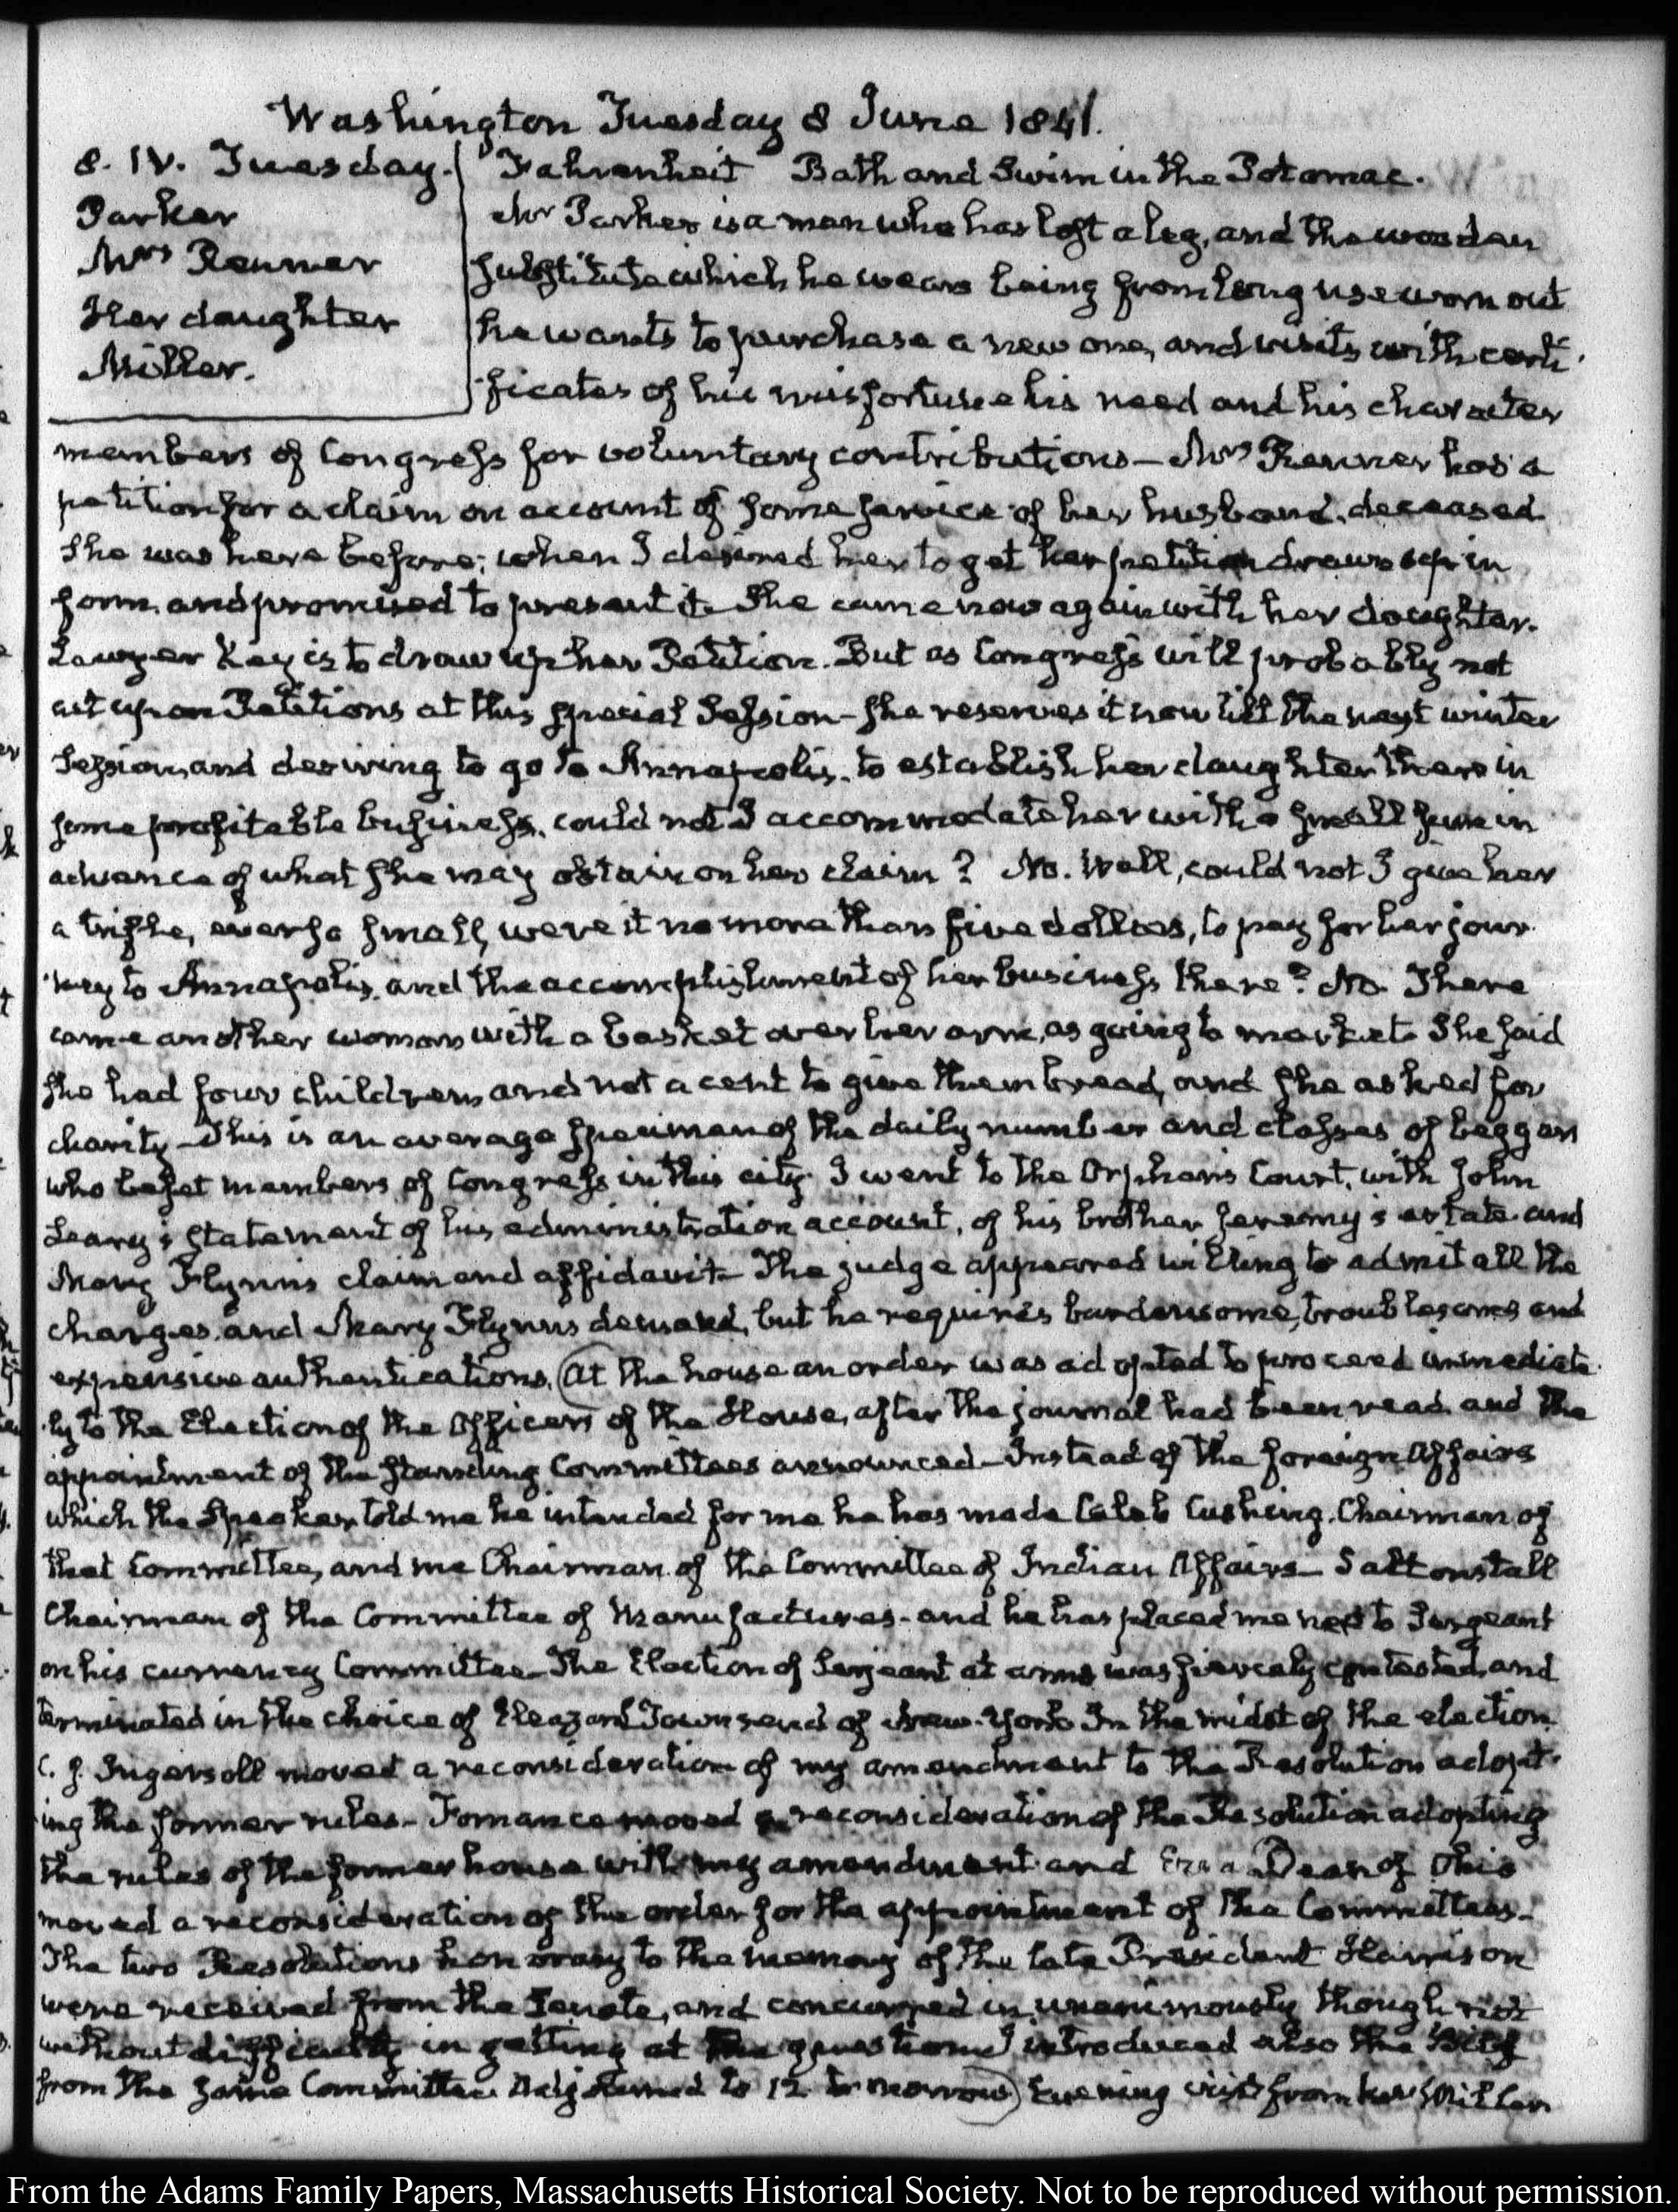 Washington Tuesday 8 June 1841.
8. IV. Tuesday.
Parker
Mrs Renner
Her daughter
Miller.
Fahrenheit Bath and Swim in the Potomac.
Mr Parker is a man who has lost a leg, and the wooden
substitute which he wears being from long use worn out
he wants to purchase a new one, and visits with certi-
-ficates of his misfortune his need and his character
members of Congress for voluntary contributions — Mrs Renner has a
petition for a claim on account of some service of her husband, deceased.
She was here before; when I desired her to get her petition drawn up in
form, and promised to present it. She came now again with her daughter.
Lawyer Key is to draw up her Petition. But as Congress will probably not
act upon Petitions at this special Session — she reserves it now till the next winter
Session, and desiring to go to Annapolis, to establish her daughter there in
some profitable business, could not I accommodate her with a small sum in
advance of what she may obtain on her claim? No. Well, could not I give her
a trifle, ever so small, were it no more than five dollars, to pay for her jour-
-ney to Annapolis, and the accomplishment of her business there? No. There
came another woman with a basket over her arm, as going to market. She said
she had four children and not a cent to give them bread, and she asked for
charity — This is an average specimen of the daily number and classes of beggars
who beset members of Congress in this city. I went to the Orphans Court, with John
Leary's statement of his administration account, of his brother Jeremy's estate and
Mary Flynn's claim and affidavit — The judge appeared willing to admit all the
charges, and Mary Flynn's demand, but he requires burdensome, troublesome and
expensive authentications. At the house an order was adopted to proceed immediate-
-ly to the Election of the Officers of the House, after the journal had been read and the
appointment of the standing Committees announced — Instead of the foreign Affairs
which the Speaker told me he intended for me he has made Caleb Cushing, Chairman of
that Committee, and me Chairman of the Committee of Indian Affairs — Saltonstall
Chairman of the Committee of Manufactures — and he has placed me next to Sergeant
on his currency Committee — The Election of Serjeant at arms was fiercely contested, and
terminated in the choice of Eleazar Townsend of New-York. In the midst of the election
C. J. Ingersoll moved a reconsideration of my amendment to the Resolution adopt-
-ing the former rules — Fornance moved a reconsideration of the Resolution adopting
the rules of the former house with my amendment and Ezra Dean of Ohio
moved a reconsideration of the order for the appointment of the Committees —
The two Resolutions honorary to the memory of the late President Harrison
were received from the Senate, and concurred in unanimously though not
without difficulty in getting at the question I introduced also the Bill
from the same Committee. Adjourned to 12 tomorrow Evening visit from Miller
From the Adams Family Papers, Massachusetts Historical Society. Not to be reproduced without permission.